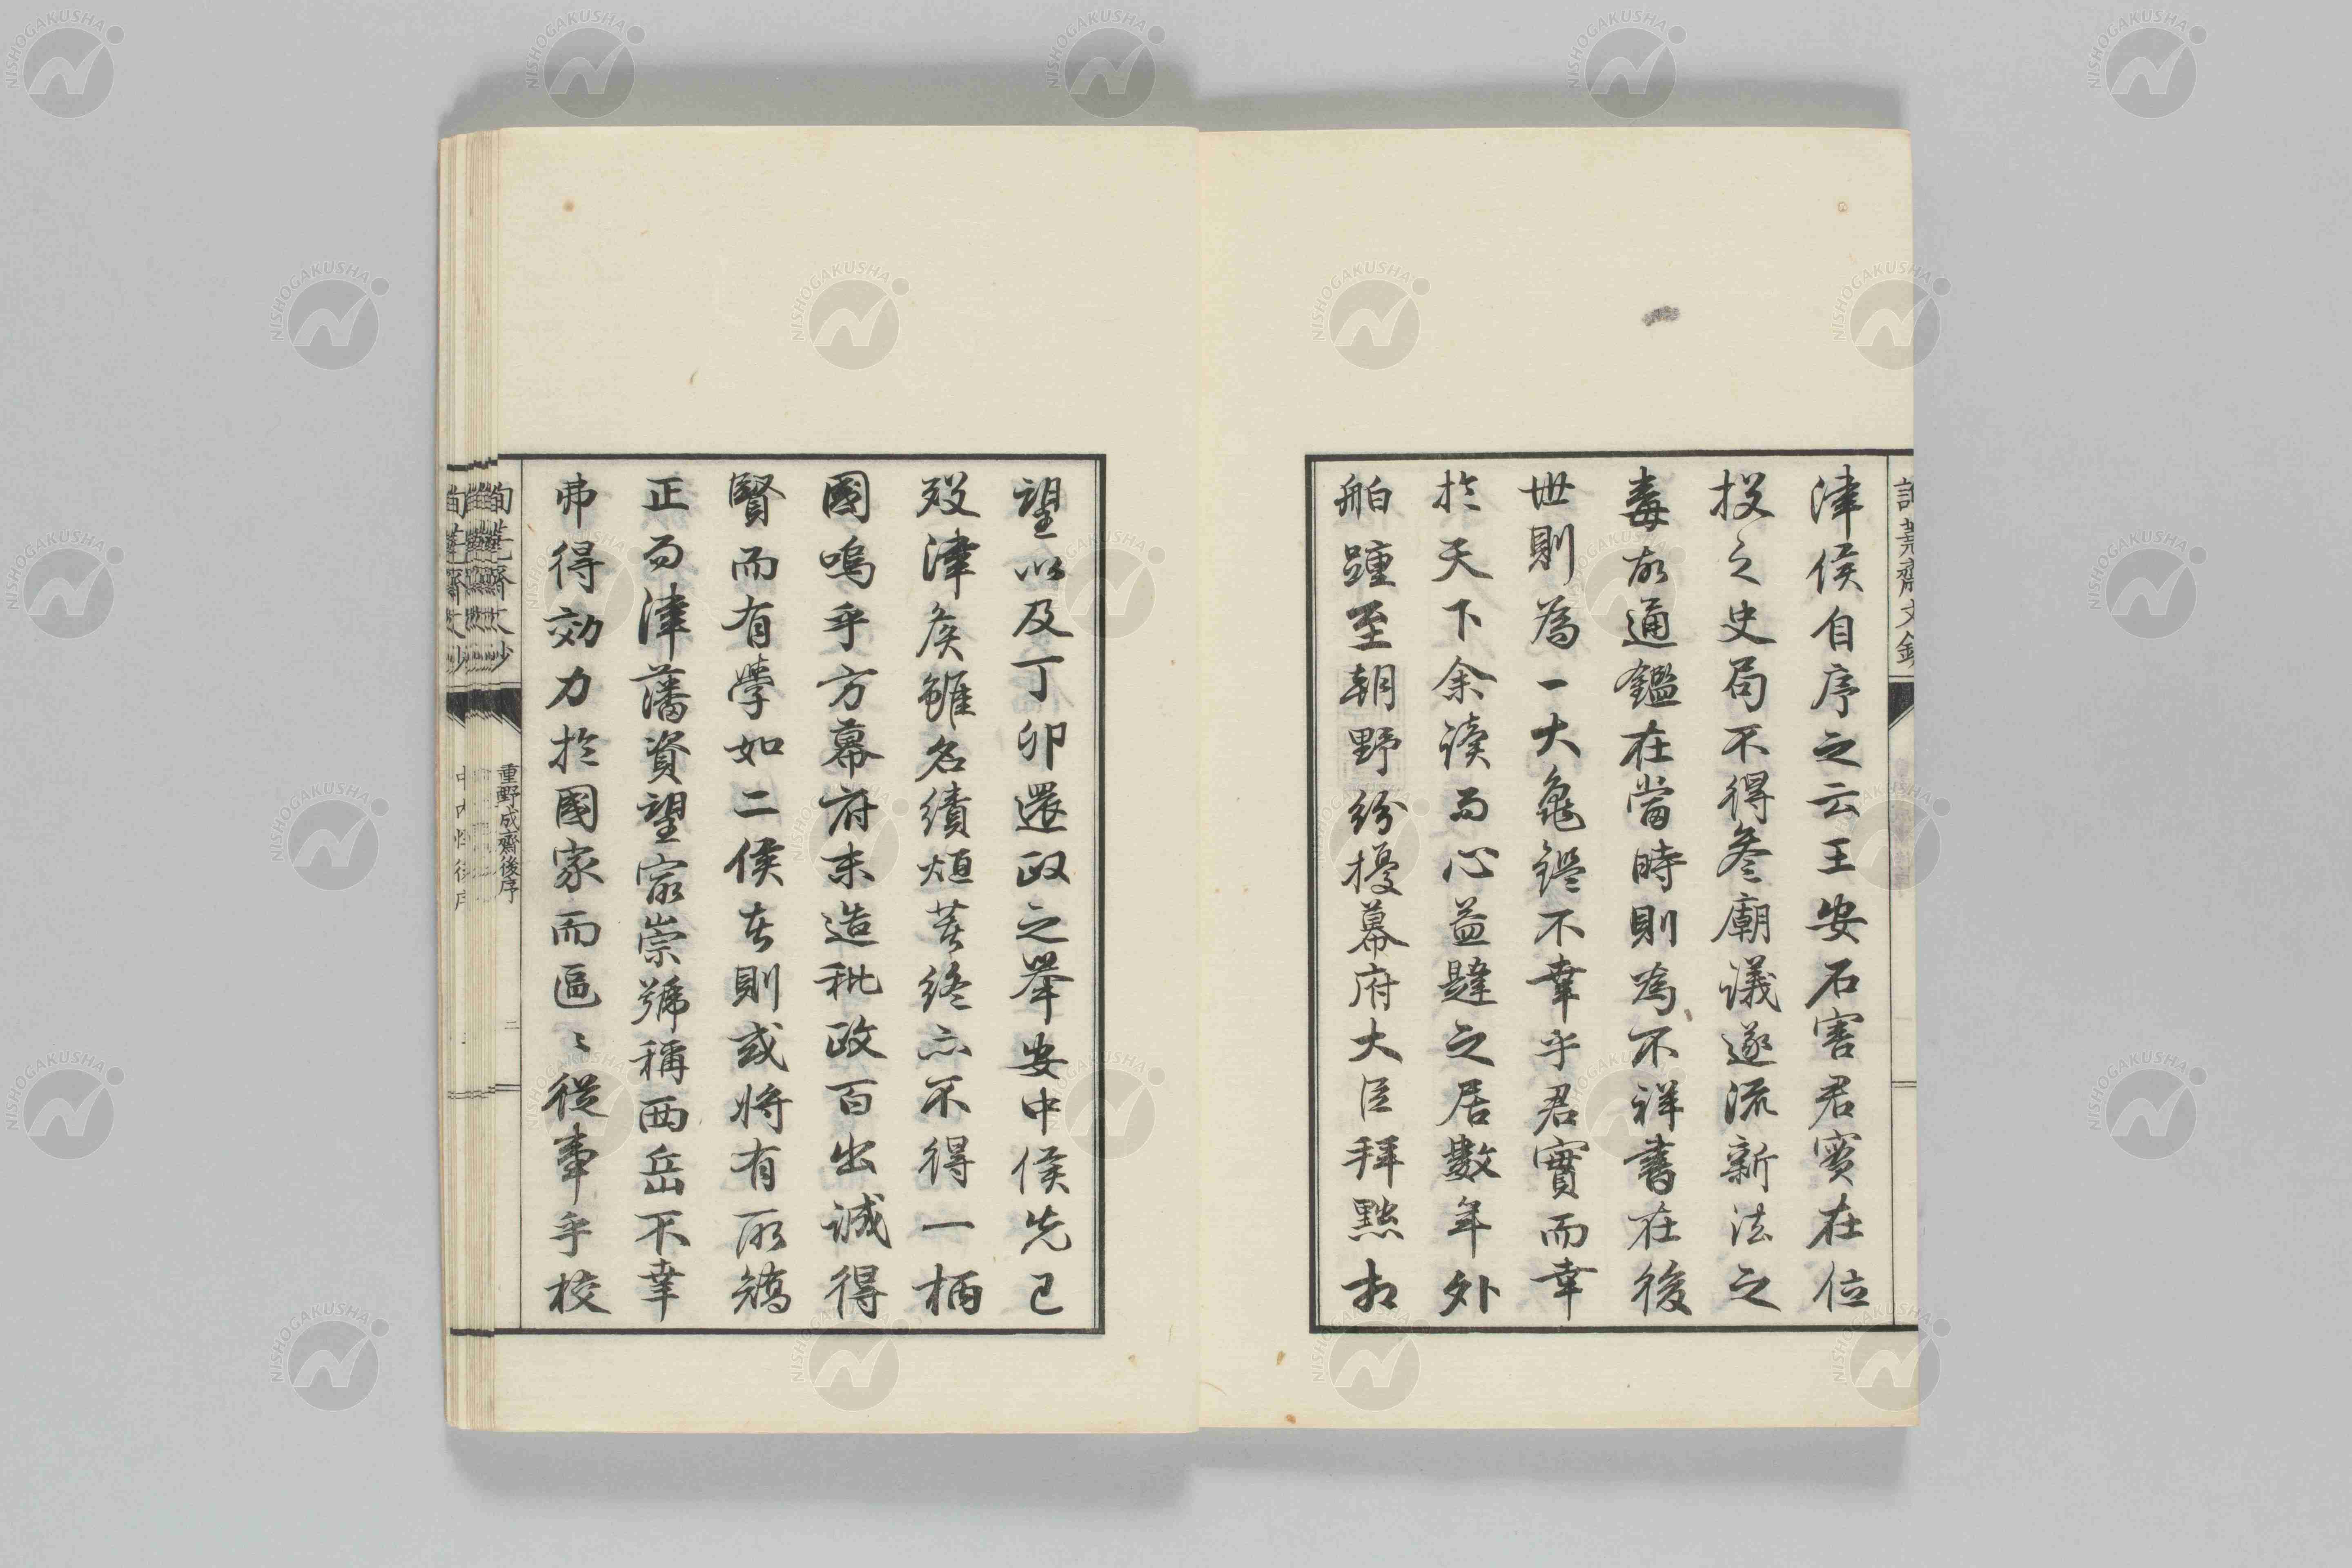 津侯自序之云王安石害君實在位
投之史局不得參廟議遂流新法之
毒故通鑑在當時則為不祥書在後
世則為一大龜鑑不幸乎君實而幸
於天下余讀而心益韙之居數年外
舶踵至朝野紛擾幕府大臣拜黜相
望以及丁卯還政之舉安中侯先已
歿津侯雖名績烜著終亦不得一柄
國嗚乎方幕府末造秕政百出誠得
賢而有學如二侯者則或將有所矯
正而津藩資望家崇號稱西岳不幸
弗得効力於國家而區〻從事乎校
重野成齋後序
二
NISHOGAKUSHA